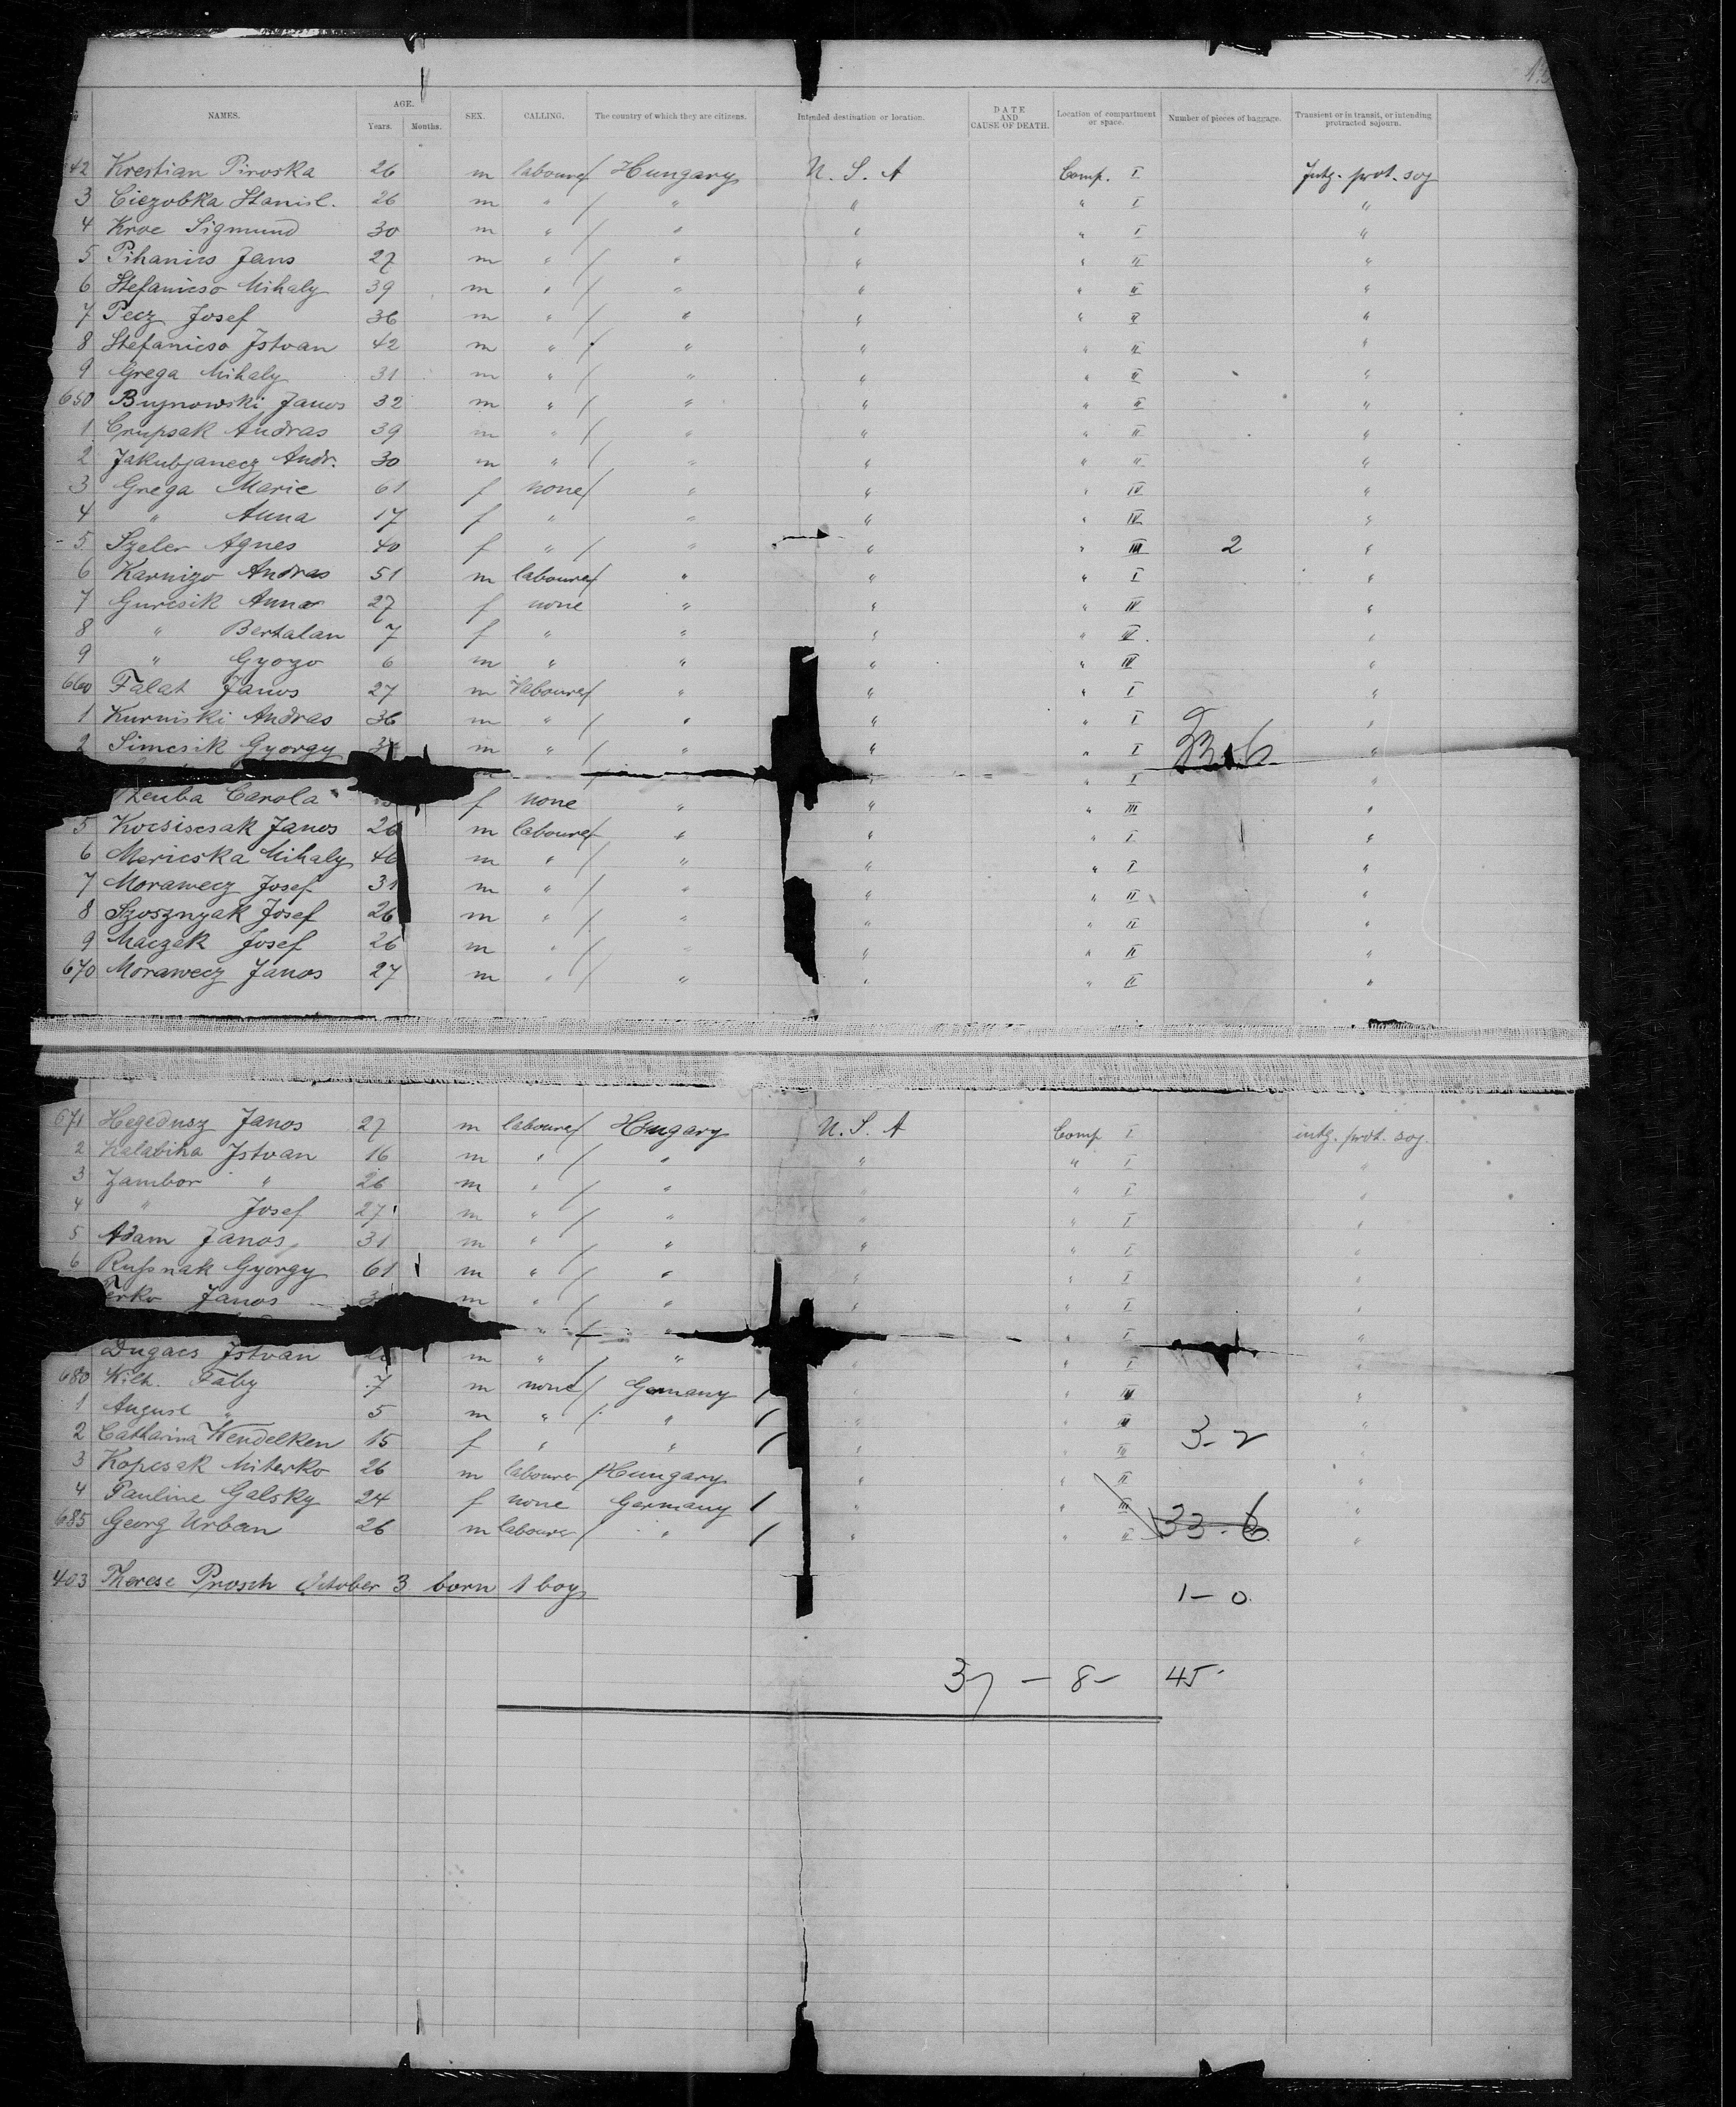 NAMES. AGE. Years. Months. SEX. CALLING. The country of which they are citizens. Intended destination or location. DATE AND CAUSE OF DEATH. Location of compartment or space. Number of pieces of baggage. Transient or in transit, or intending protracted sojourn.
42 Krestian Piroska 26 m labourer Hungary U. S. A Comp. I Intg. prot. soj
3 Ciezobka Stanisl. 26 m " " " " I "
4 Kroe Sigmund 30 m " " " " I "
5 Pihanics Jans 27 m " " " " II "
6 Stefanicso Mihaly 39 m " " " " II "
7 Pecz Josef 36 m " " " " II "
8 Stefanicso Istvan 42 m " " " " II "
9 Grega Mihaly 31 m " " " " II "
650 Bujnowski Janos 32 m " " " " II "
1 Crupsak Andras 39 m " " " " II "
2 Jakubjanecz Andr. 30 m " " " " II "
3 Grega Marie 61 f none " " " IV "
4 " Anna 17 f " " " " IV "
5 Szeler Agnes 40 f " " " " III 2 "
6 Karnizo Andras 51 m labourer " " " I "
7 Gurcsik Anna 27 f none " " " IV "
8 " Bertalan 7 f " " " " IV "
9 " Gyozo 6 m " " " " IV "
660 Falat Janos 27 m labourer " " " I "
1 Kurniski Andras 36 m " " " " I "
2 Simcsik Gyorgy m " " " " I "
" I "
Carola f none " " " III "
5 Kocsiscsak Janos 26 m labourer " " " I "
6 Maricska Mihaly 46 m " " " " I "
7 Morawecz Josef 31 m " " " " II "
8 Szosznyak Josef 26 m " " " " II "
9 Maczek Josef 26 m " " " " II "
670 Morawecz Janos 27 m " " " " II "
671 Hegedusz Janos 27 m labourer Hungary U. S. A Comp I intg. prot. soj.
2 Kalabiha Istvan 16 m " " " " I "
3 Zambor " 26 m " " " " I "
4 " Josef 27 m " " " " I "
5 Adam Janos 31 m " " " " I "
6 Rußnak Gyorgy 61 m " " " " I "
Janos m " " " " I "
" " " I "
Dugacs Istvan m " " " " I "
680 Wilh. Faby 7 m none Germany " " III "
1 August " 5 m " " " " III "
2 Catharina Wendelken 15 f " " " " III 3-2 "
3 Kopcsak Miterko 26 m labourer Hungary " " II "
4 Pauline Galsky 24 f none Germany " " III "
685 Georg Urban 26 m labourer " " " II 33-6 "
403 Therese Prosch October 3 born 1 boy 1-0
37 - 8 - 45